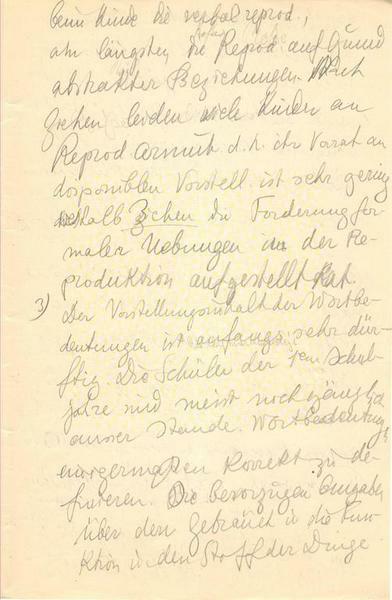 beim Kinde die verbalreprod.,
am längsten die Reprod auf Grund
abstrakter Beziehungen. Nach
Ziehen leiden viele Kinder an
Reprod armut d. h. ihr Vorrat an
disponiblen Vorstell. ist sehr gering
weshalb Ziehen die Forderung for
maler Uebungen in der Re-
produktion aufgestellt hat.
3) Der Vorstellungsinhalt der Wortbe-
deutungen ist anfangs sehr dür-
ftig. Die Schüler der 1sten Schul
jahre sind meist noch gänzlich
ausser Stande. Wortbedeutung
einigermaßen korrekt zu de-
finieren. Die bevorzugen Angaben
über den Gebrauch u die Fun-
ktion u den Stoff der Dinge